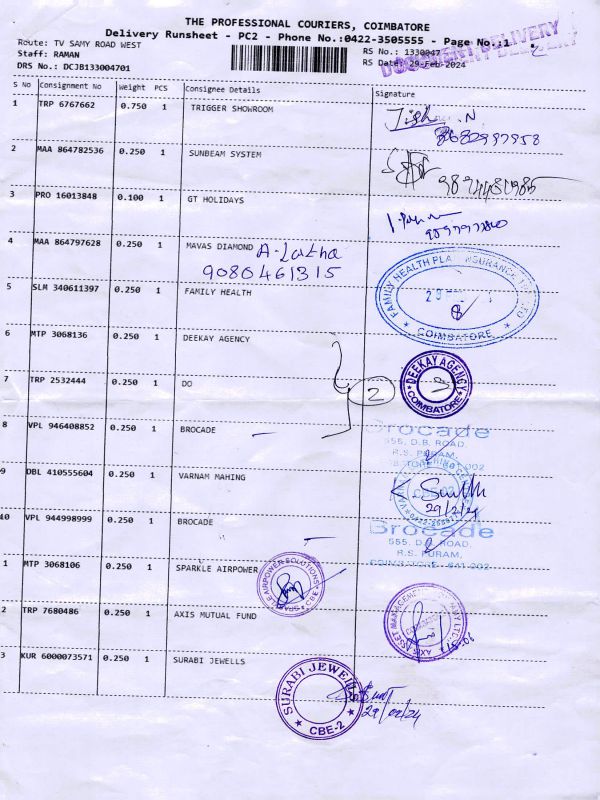 THE PROFESSIONAL COURIERS, COIMBATORE
Delivery Runsheet - PC2 - Phone No.:0422-3505555 - Page No.:1
DOCUMENT DELIVERY
Route: TV SAMY ROAD WEST
Staff: RAMAN
DRS No.: DCJB133004701
RS No.: 1330047
RS Date: 29-Feb-2024
S No Consignment No Weight PCS Consignee Details Signature
1 TRP 6767662 0.750 1 TRIGGER SHOWROOM
2 MAA 864782536 0.250 1 SUNBEAM SYSTEM
3 PRO 16013848 0.100 1 GT HOLIDAYS
4 MAA 864797628 0.250 1 MAVAS DIAMOND A-Latha
9080461315
5 SLM 340611397 0.250 1 FAMILY HEALTH
FAMILY HEALTH PLAN INSURANCE
COIMBATORE
6 MTP 3068136 0.250 1 DEEKAY AGENCY
DEEKAY AGENCY
COIMBATORE
7 TRP 2532444 0.250 1 DO 2
8 VPL 946408852 0.250 1 BROCADE
Brocade
555, D.B. ROAD,
R.S. PURAM,
9 DBL 410555604 0.250 1 VARNAM MAHING
29/2/24
10 VPL 944998999 0.250 1 BROCADE
Brocade
555, D.B. ROAD,
R.S. PURAM,
COIMBATORE - 641 002
1 MTP 3068106 0.250 1 SPARKLE AIRPOWER
SPARKLE AIRPOWER SOLUTIONS
CBE
2 TRP 7680486 0.250 1 AXIS MUTUAL FUND
AXIS ASSET MANAGEMENT COMPANY LTD
3 KUR 6000073571 0.250 1 SURABI JEWELLS
SURABI JEWELL
CBE-2
29/02/24